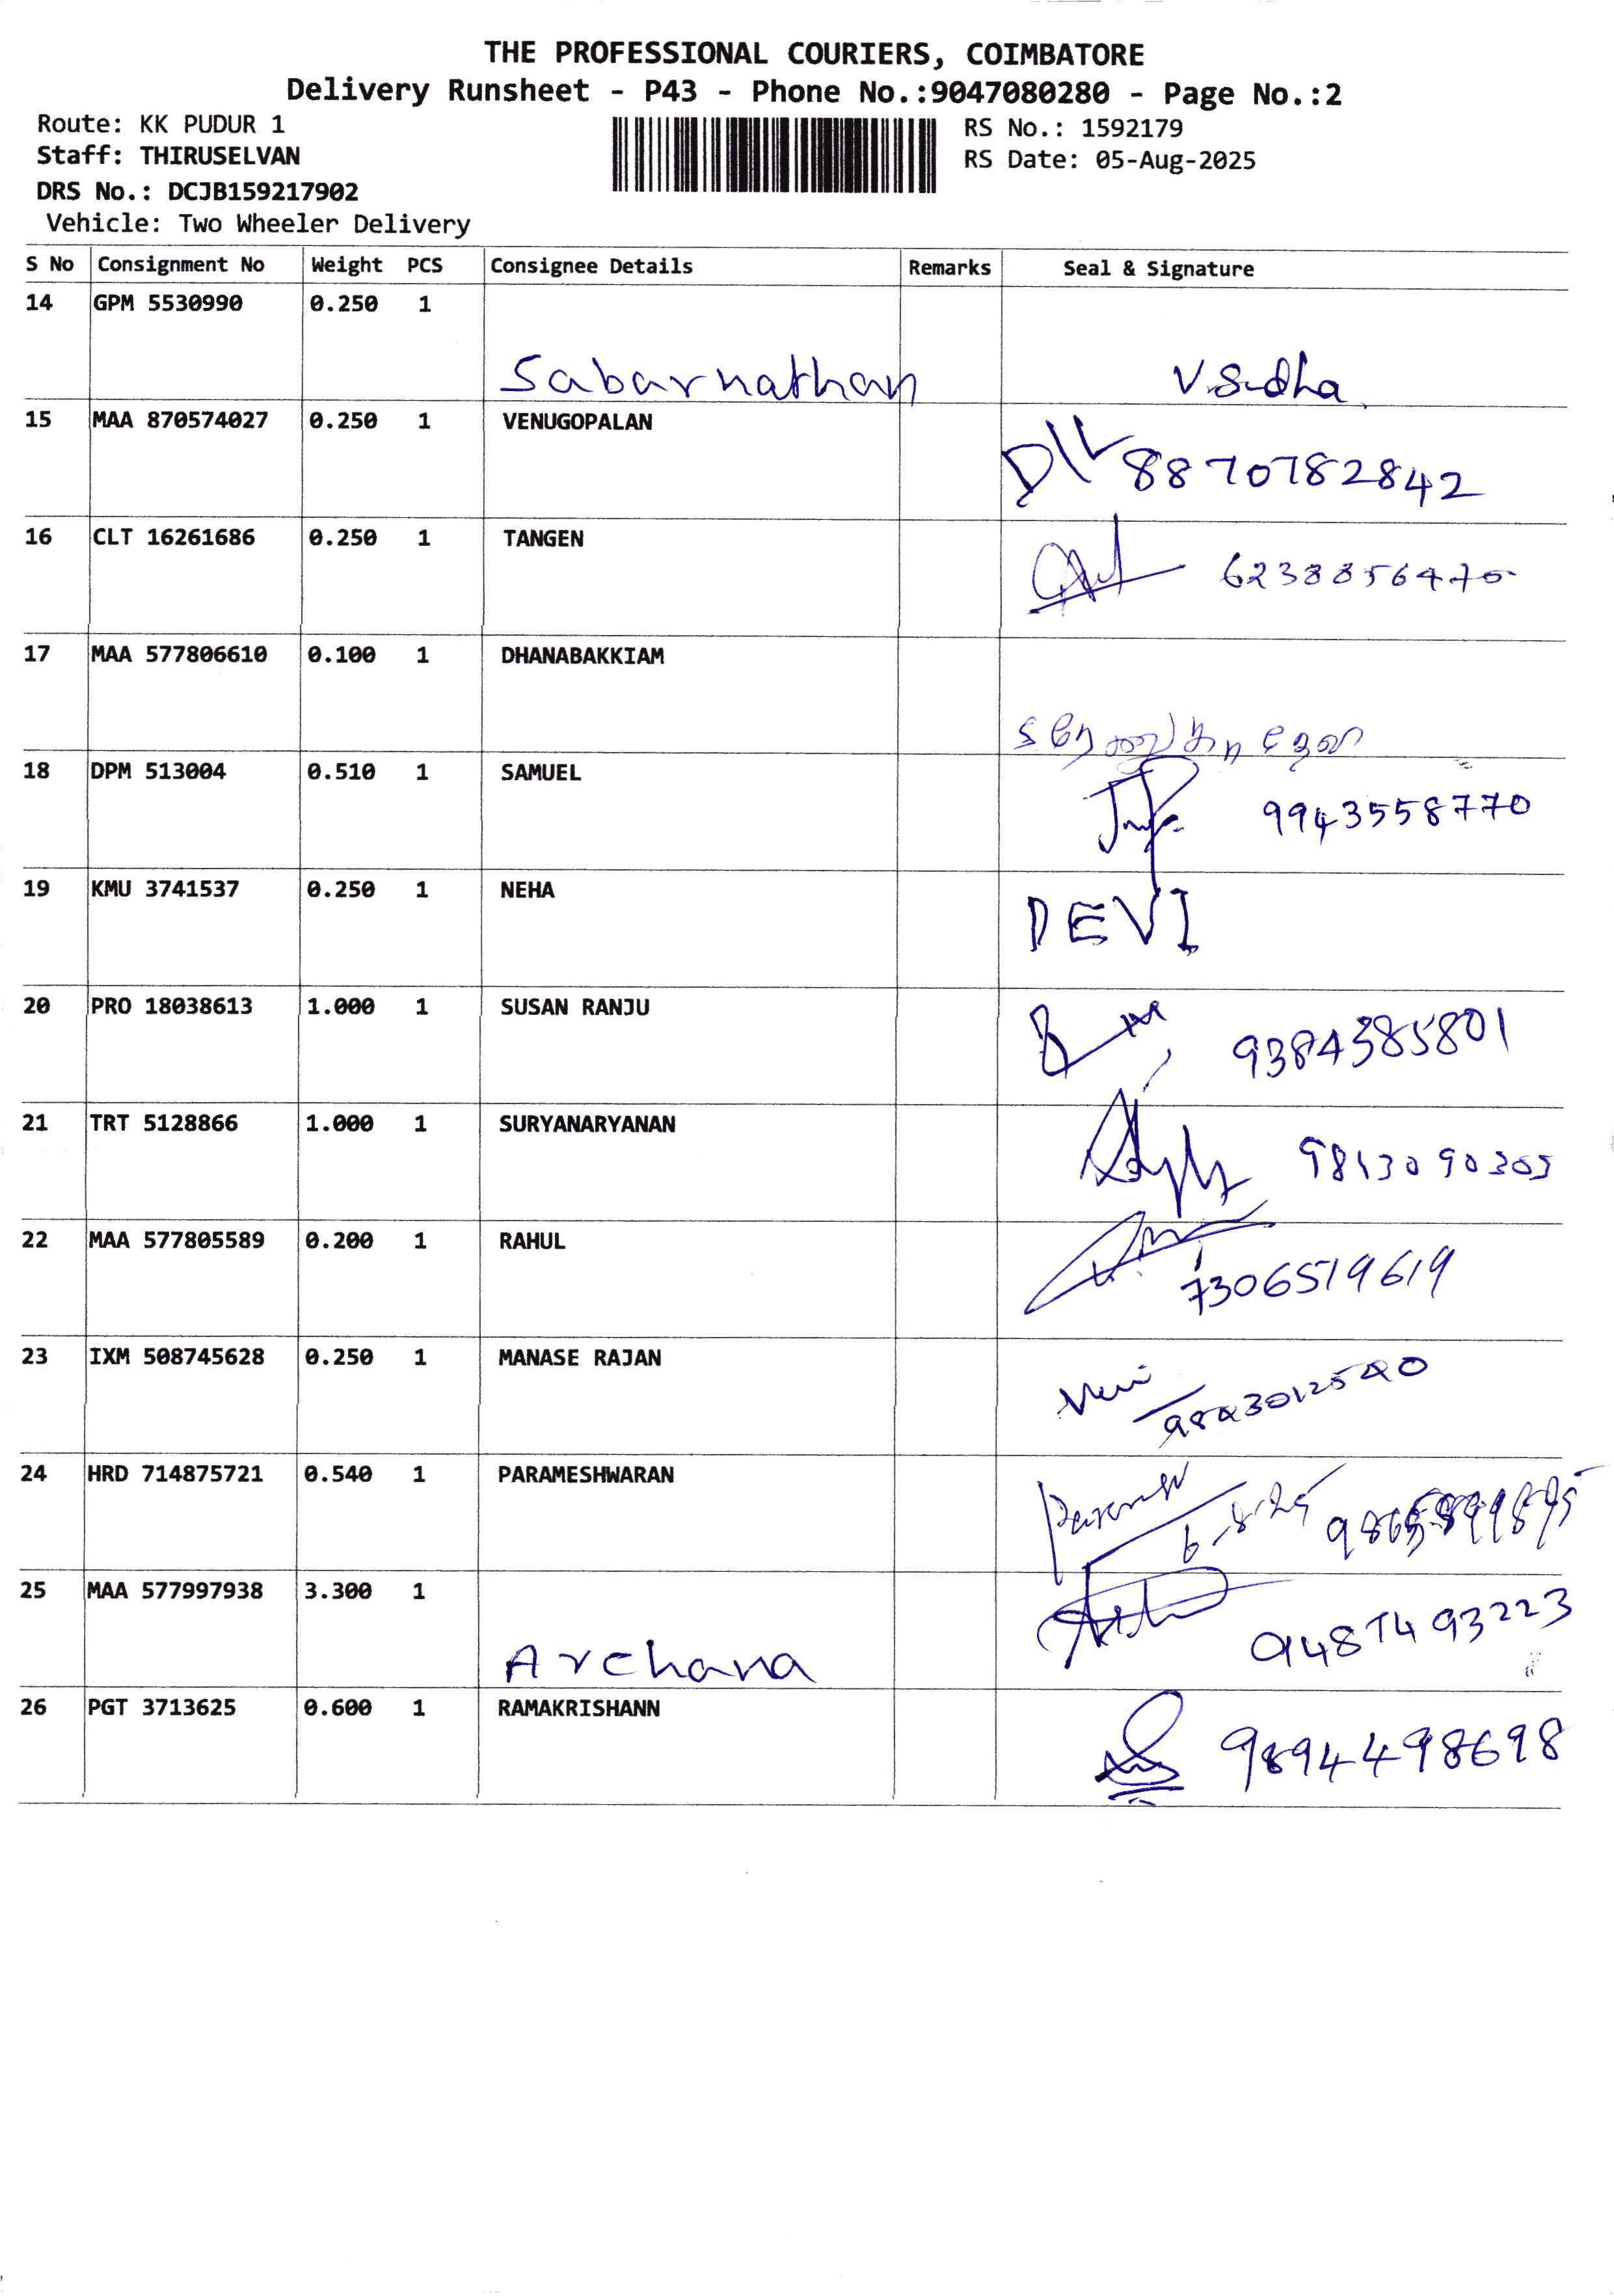 THE PROFESSIONAL COURIERS, COIMBATORE
Delivery Runsheet - P43 - Phone No.:9047080280 - Page No.:2
Route: KK PUDUR 1
Staff: THIRUSELVAN
DRS No.: DCJB159217902
Vehicle: Two Wheeler Delivery
RS No.: 1592179
RS Date: 05-Aug-2025
S No Consignment No Weight PCS Consignee Details Remarks Seal & Signature
14 GPM 5530990 0.250 1
Sabarnathan V.Sudha
15 MAA 870574027 0.250 1 VENUGOPALAN
8870782842
16 CLT 16261686 0.250 1 TANGEN
6238856470
17 MAA 577806610 0.100 1 DHANABAKKIAM
18 DPM 513004 0.510 1 SAMUEL
9943558770
19 KMU 3741537 0.250 1 NEHA
DEVI
20 PRO 18038613 1.000 1 SUSAN RANJU
9384385801
21 TRT 5128866 1.000 1 SURYANARYANAN
22 MAA 577805589 0.200 1 RAHUL
7306519619
23 IXM 508745628 0.250 1 MANASE RAJAN
9843012540
24 HRD 714875721 0.540 1 PARAMESHWARAN
6-8-25
25 MAA 577997938 3.300 1
Archana 9487493223
26 PGT 3713625 0.600 1 RAMAKRISHANN
9894498698